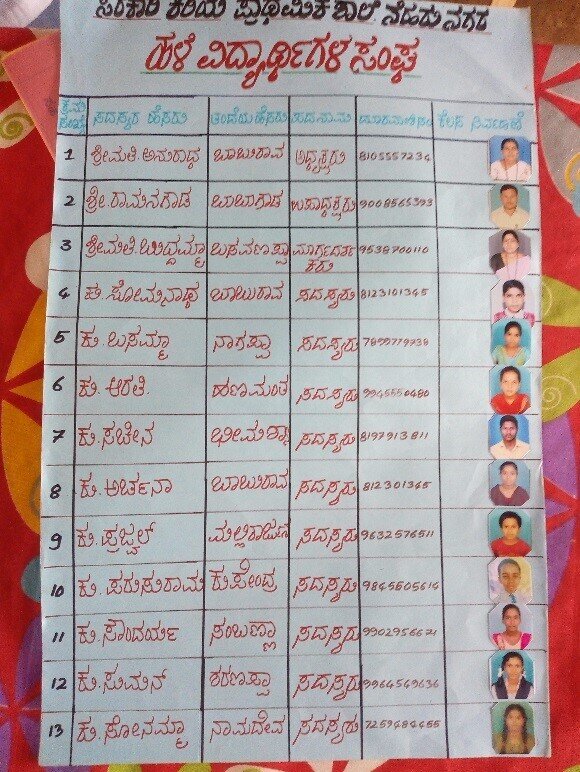 ಸರಕಾರಿ ಕಿರಿಯ ಪ್ರಾಥಮಿಕ ಶಾಲೆ ನೆಹರು ನಗರ
ಹಳೆ ವಿದ್ಯಾರ್ಥಿಗಳ ಸಂಘ
ಕ್ರಮ ಸಂಖ್ಯೆ ಸದಸ್ಯರ ಹೆಸರು ತಂದೆಯ ಹೆಸರು ಪದನಾಮ ಕೆಲಸ ನಿರ್ವಹಣೆ
1 ಶ್ರೀಮತಿ ಅನುರಾಧ ಬಾಬುರಾವ ಅಧ್ಯಕ್ಷರು 8105557234
2 ಶ್ರೀ.ರಾಮನಗೌಡ ಬಾಬುಗೌಡ ಉಪಾಧ್ಯಕ್ಷರು 9008565393
3 ಶ್ರೀಮತಿ.ಬುದ್ದಮ್ಮಾ ಬಸವಣಪ್ಪಾ ಮಾರ್ಗದರ್ಶ
ಕರು 9538700110
4 ಕು.ಸೋಮಿನಾಥ ಬಾಬುರಾವ ಸದಸ್ಯರು 8123101345
5 ಕು.ಬಸಮ್ಮಾ ನಾಗಪ್ಪಾ ಸದಸ್ಯರು 7899779738
6 ಕು.ಆರತಿ. ಹಣಮಂತ ಸದಸ್ಯರು 9945550480
7 ಕು.ಸಚೀನ ಭೀಮಶ್ಯಾ ಸದಸ್ಯರು 8197913811
8 ಕು.ಅರ್ಚನಾ ಬಾಬುರಾವ ಸದಸ್ಯರು 812301345
9 ಕು.ಪ್ರಜ್ವಲ್ ಮಲ್ಲಿಕಾರ್ಜುನ ಸದಸ್ಯರು 9632576511
10 ಕು.ಪರುಸುರಾಮ ಕುಪೇಂದ್ರ ಸದಸ್ಯರು 9845605614
11 ಕು.ಸೌಂದರ್ಯ ಸಂಬಣ್ಣಾ ಸದಸ್ಯರು 9902956621
12 ಕು.ಸುಮನ್ ಶರಣಪ್ಪಾ ಸದಸ್ಯರು 9964549636
13 ಕು.ಸೋನಮ್ಮಾ ನಾಮದೇವ ಸದಸ್ಯರು 7259484455